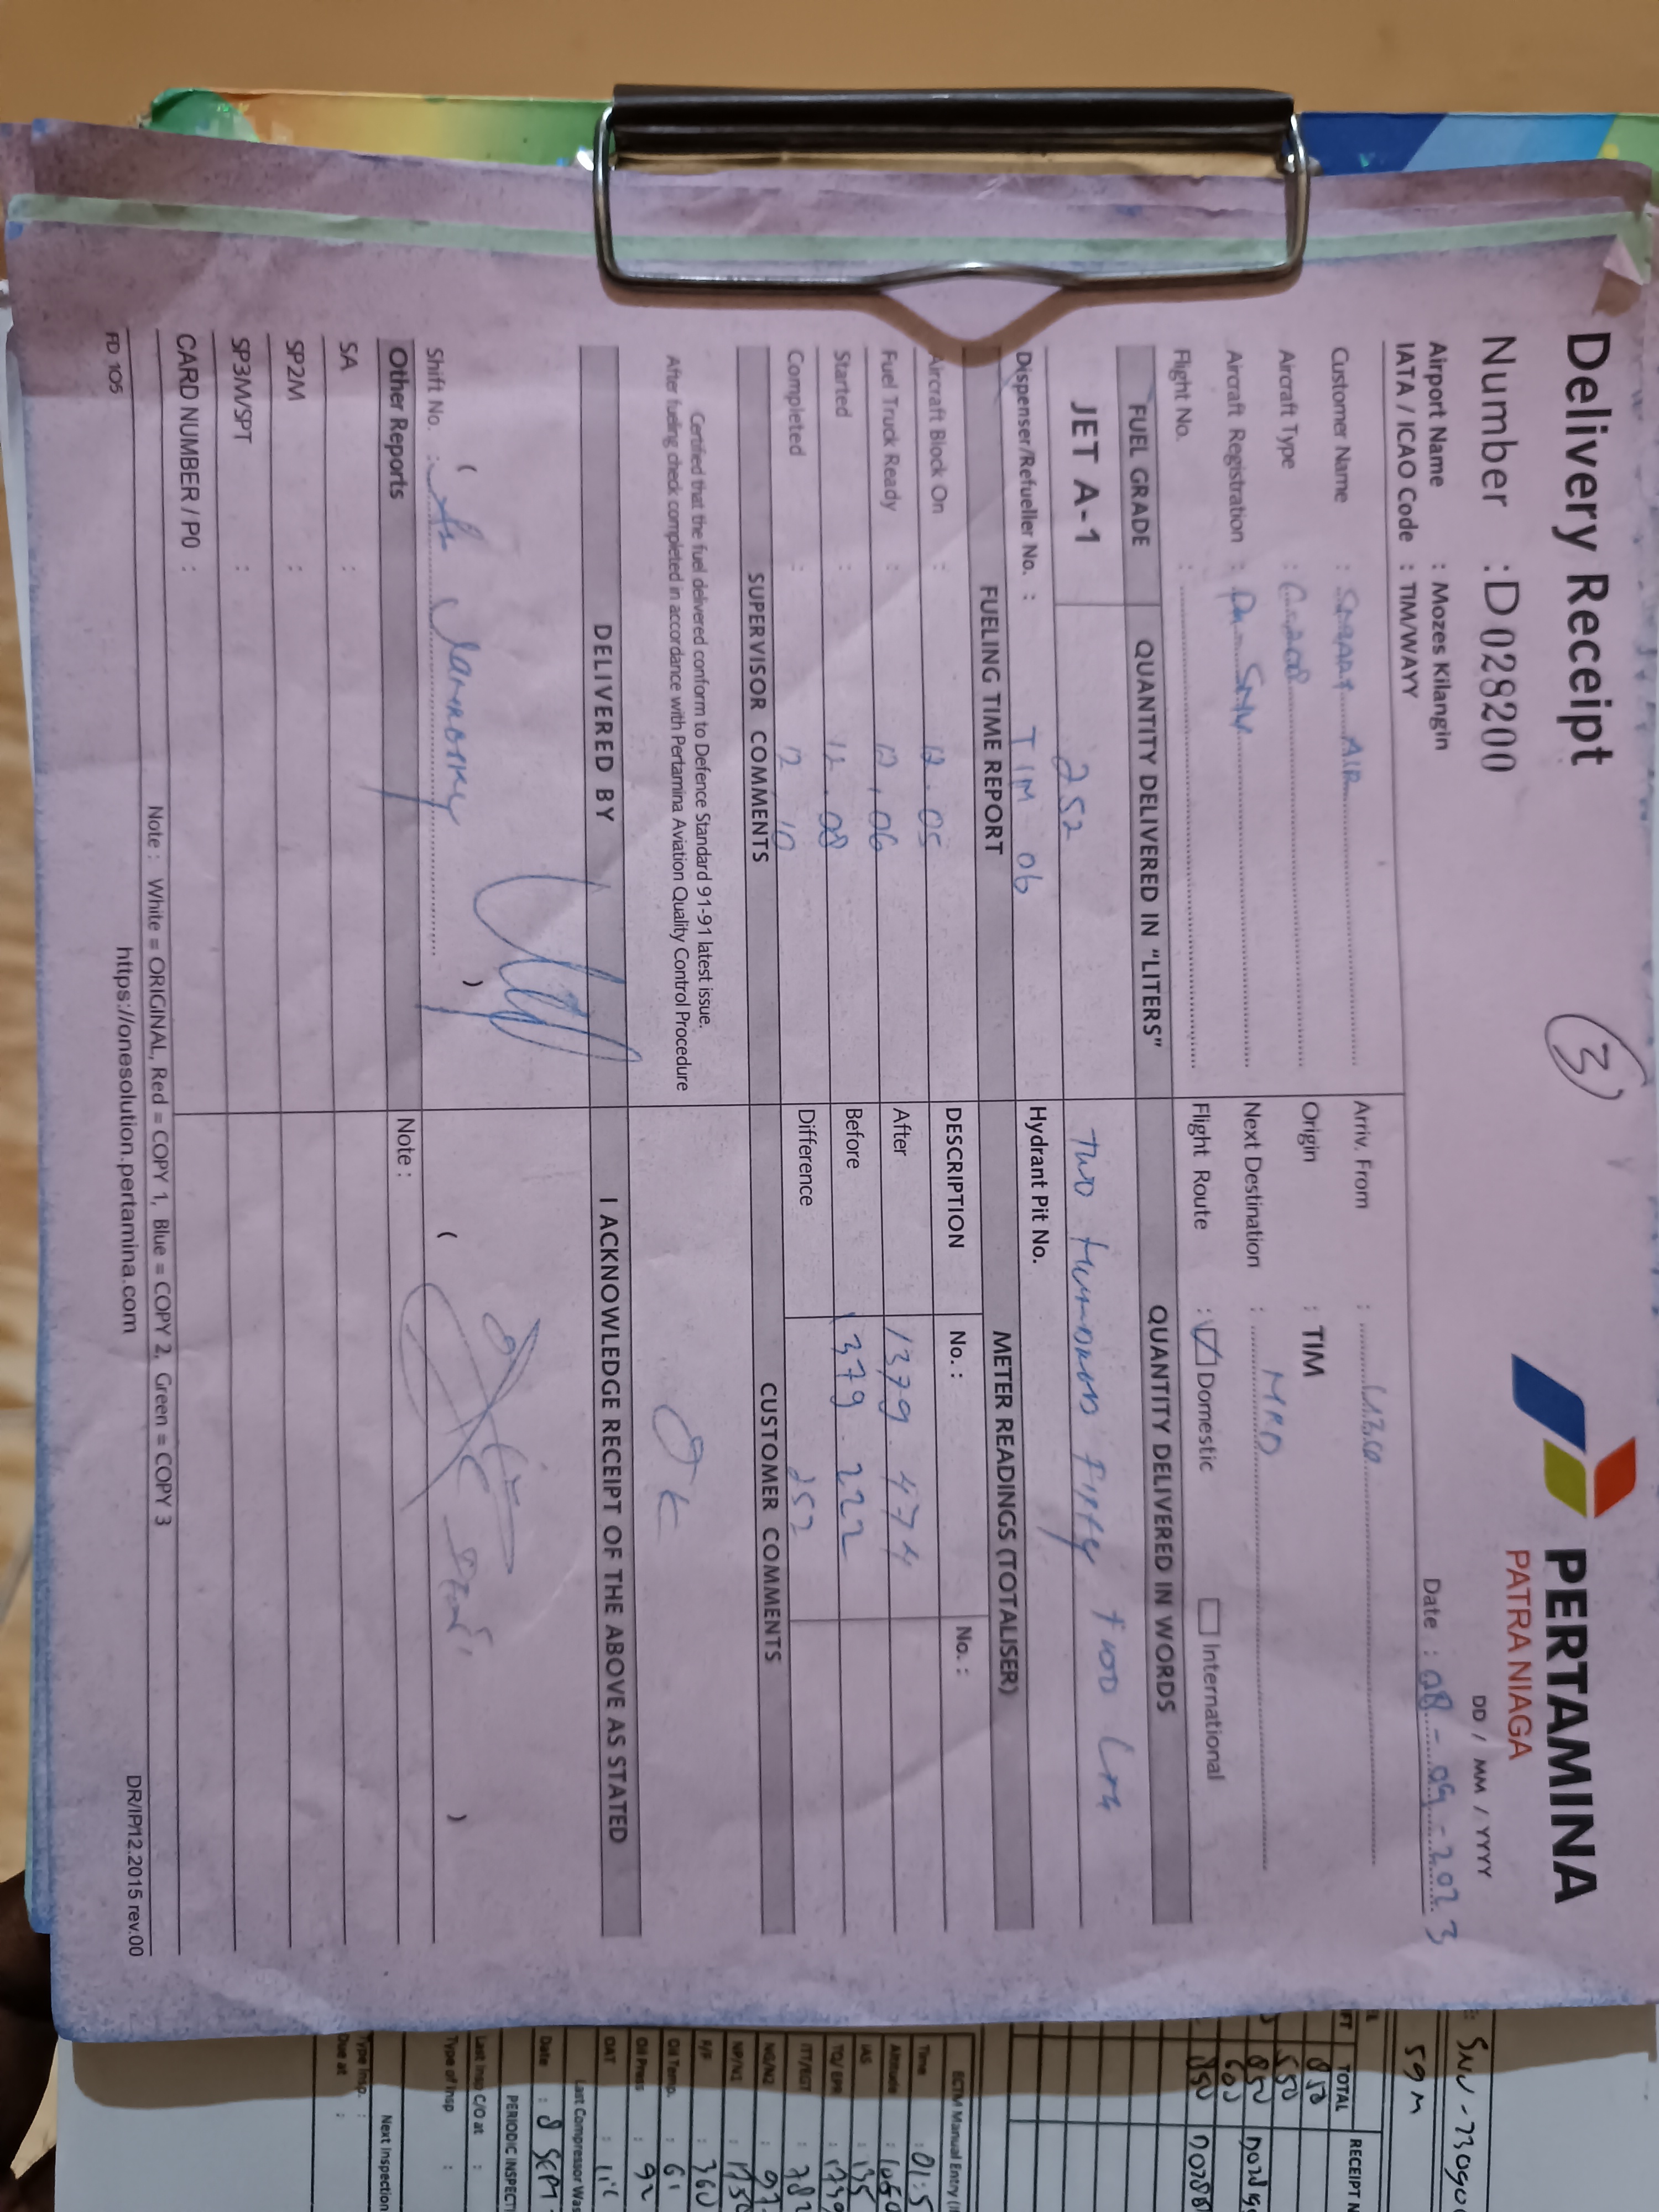 Delivery Receipt
3
PERTAMINA
PATRA NIAGA
Number : D 028200
DD / MM / YYYY
Date : 08 - 09 - 2023
Airport Name : Mozes Kilangin
IATA / ICAO Code : TIM/WAYY
Customer Name : SMART AIR
Arriv. From :
Aircraft Type : C. 208
Origin : TIM
Aircraft Registration : PK - SNV
Next Destination :
Flight No. :
Flight Route : Domestic International
FUEL GRADE QUANTITY DELIVERED IN "LITERS" QUANTITY DELIVERED IN WORDS
JET A-1 252 Two Hundred Fifty Two Ltr
Dispenser/Refueller No. : TIM 06 Hydrant Pit No.
FUELING TIME REPORT METER READINGS (TOTALISER)
Aircraft Block On : 12.05 DESCRIPTION No. : No. :
Fuel Truck Ready : 12.06 After 1379.474
Started : 12.08 Before 1379.222
Completed : 12 10 Difference 252
SUPERVISOR COMMENTS CUSTOMER COMMENTS
Certified that the fuel delivered conform to Defence Standard 91-91 latest issue.
After fueling check completed in accordance with Pertamina Aviation Quality Control Procedure
OK
DELIVERED BY I ACKNOWLEDGE RECEIPT OF THE ABOVE AS STATED
( ) ( )
Shift No. :
Other Reports Note :
SA :
SP2M :
SP3M/SPT :
CARD NUMBER / PO :
Note : White = ORIGINAL, Red = COPY 1, Blue = COPY 2, Green = COPY 3
FD 105 https://onesolution.pertamina.com DR/IP/12.2015 rev.00
59 M
TOTAL RECEIPT N
850
550
850
600
850
ECTM Manual Entry
Time : 01:5
Altitude
IAS : 135
TQ/EPR
ITT/EGT
NG/N2
NP/N1
F/F : 360
Oil Temp. : 61
Oil Press : 92
OAT
Last Compressor Was
Date : 8 SEPT
PERIODIC INSPECT
Last Insp C/O at :
Type of Insp :
Next Inspection
Type Insp. :
Due at :